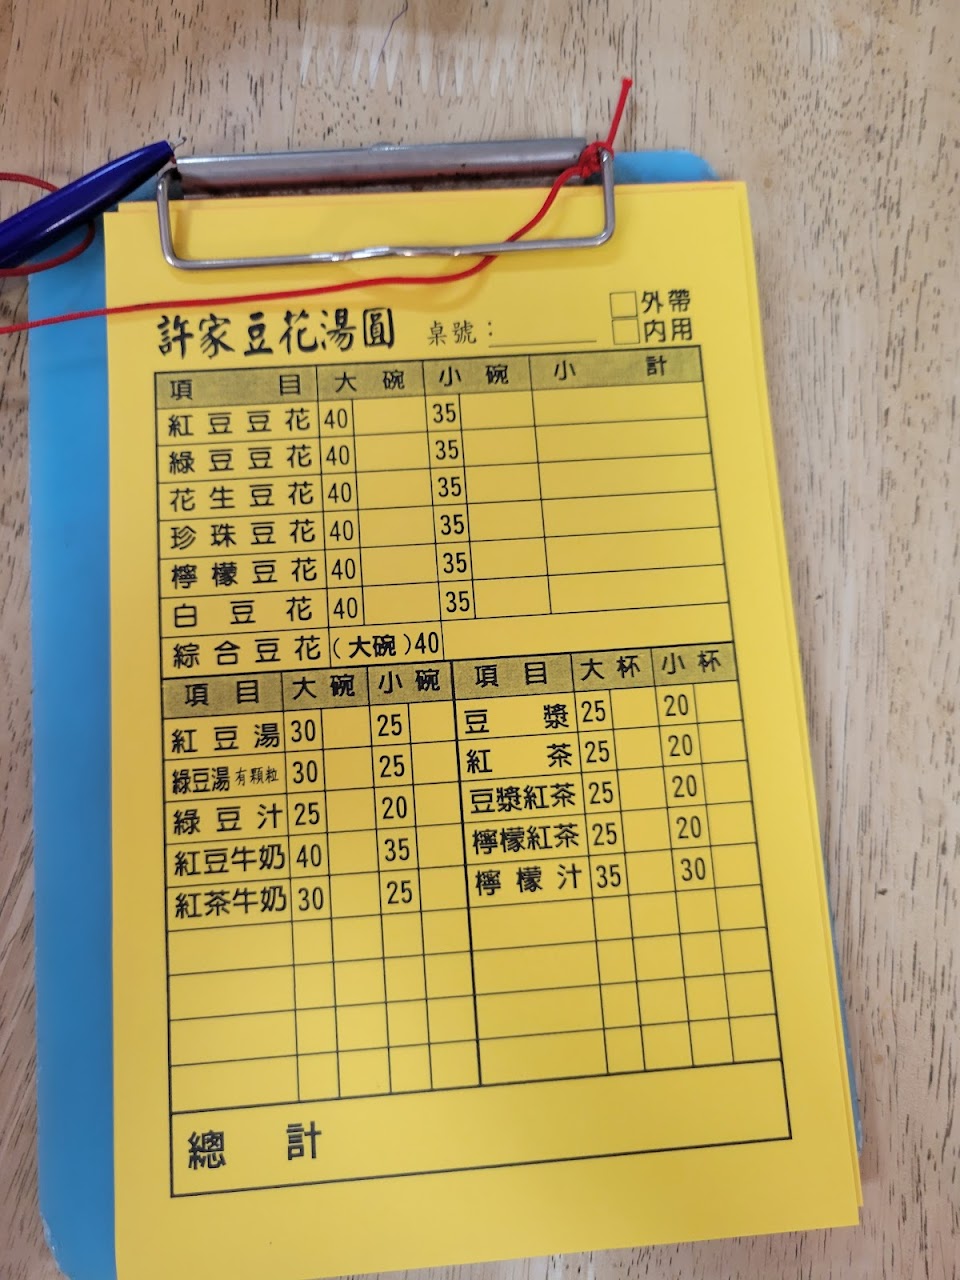 外帶
許家豆花湯圓 桌號：
內用
項目 大碗 小碗 小計
紅豆豆花 40 35
綠豆豆花 40 35
花生豆花 40 35
珍珠豆花 40 35
檸檬豆花 40 35
白豆花 40 35
綜合豆花 (大碗)40
項目 大碗 小碗 項目 大杯 小杯
紅豆湯 30 25 豆漿 25 20
綠豆湯有顆粒 30 25 紅茶 25 20
綠豆汁 25 20 豆漿紅茶 25 20
紅豆牛奶 40 35 檸檬紅茶 25 20
紅茶牛奶 30 25 檸檬汁 35 30
總計